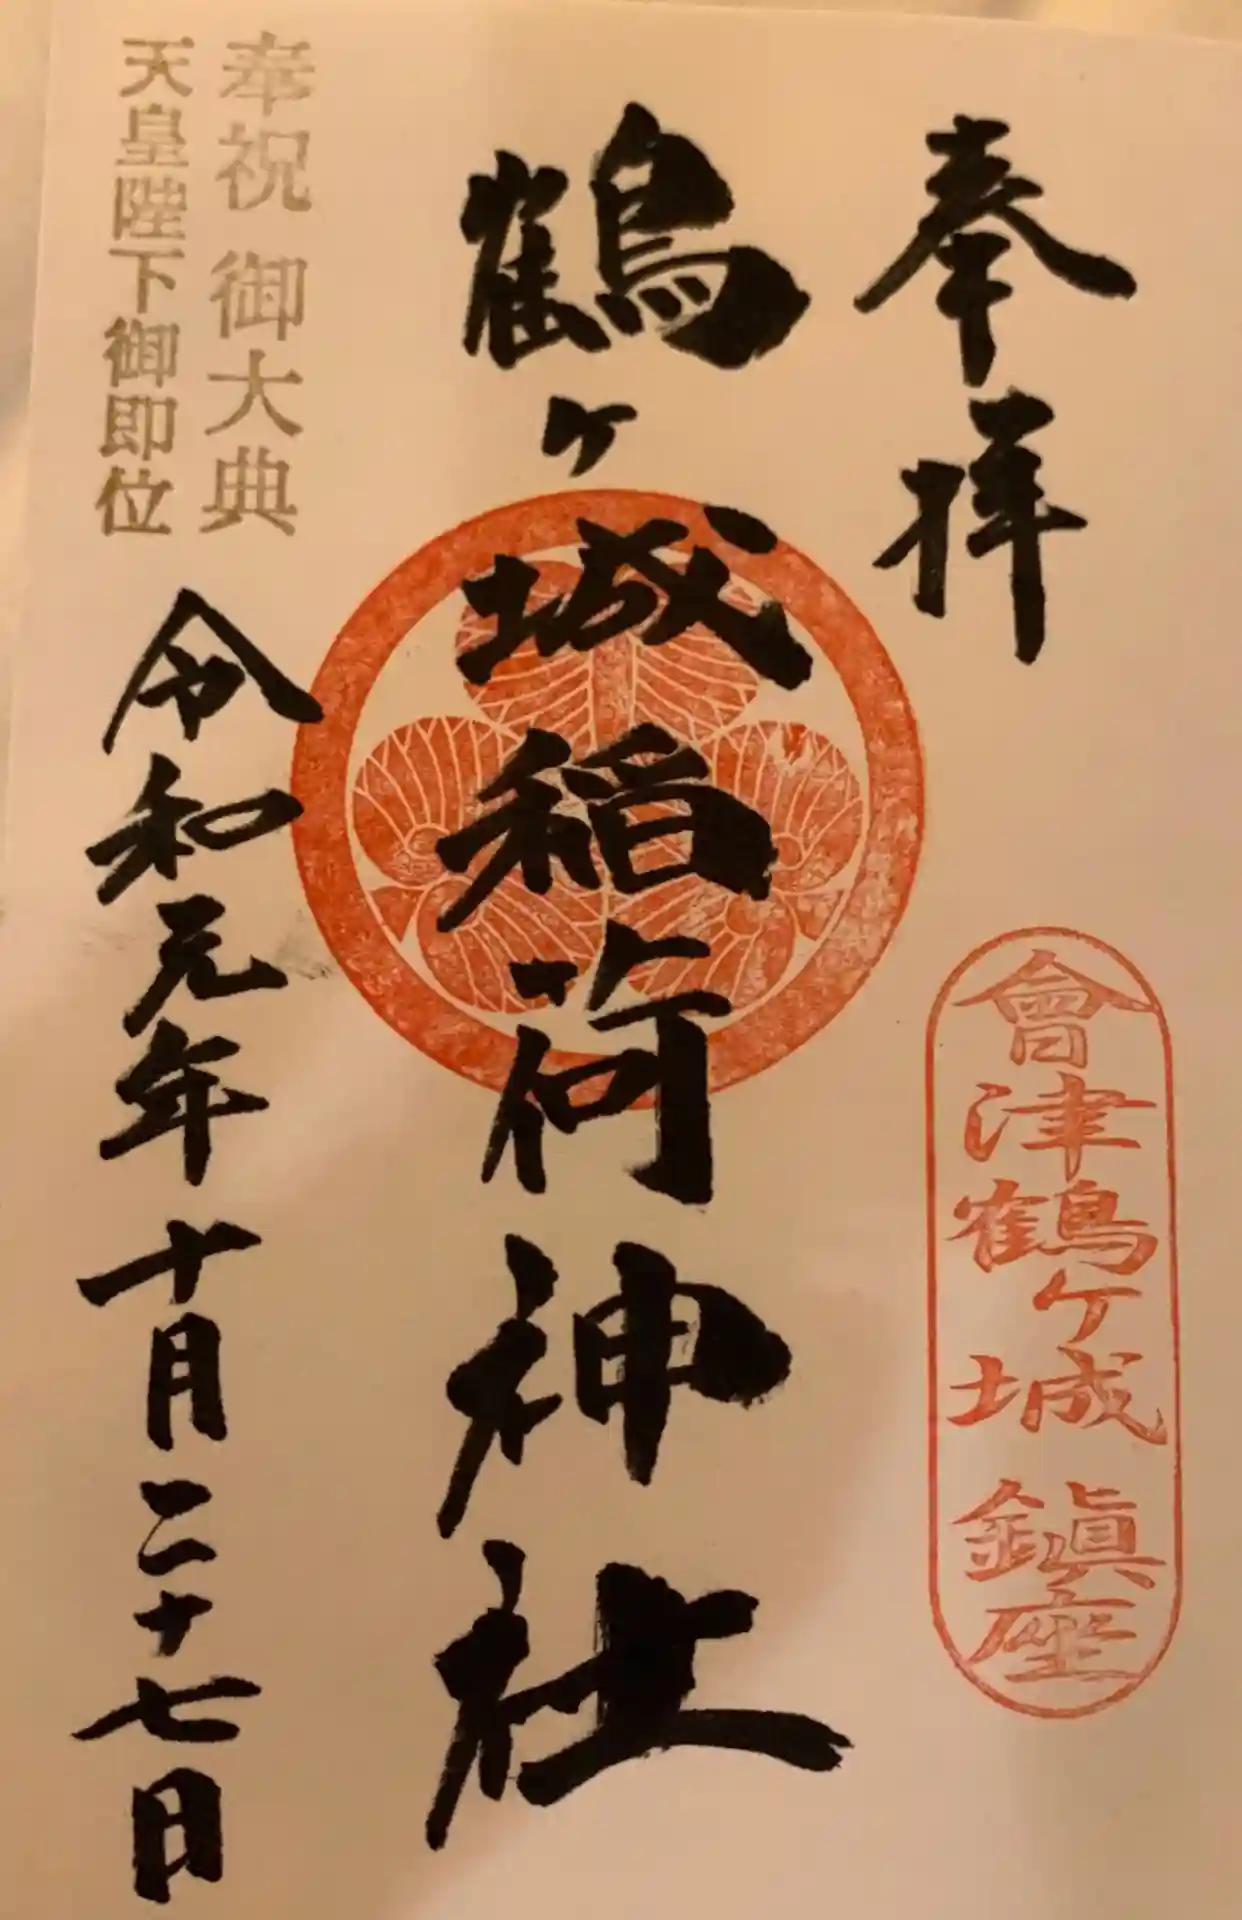 奉拝
會津鶴ヶ城鎮座
鶴ヶ城稲荷神社
奉祝 御大典
天皇陛下御即位
令和元年十月二十七日